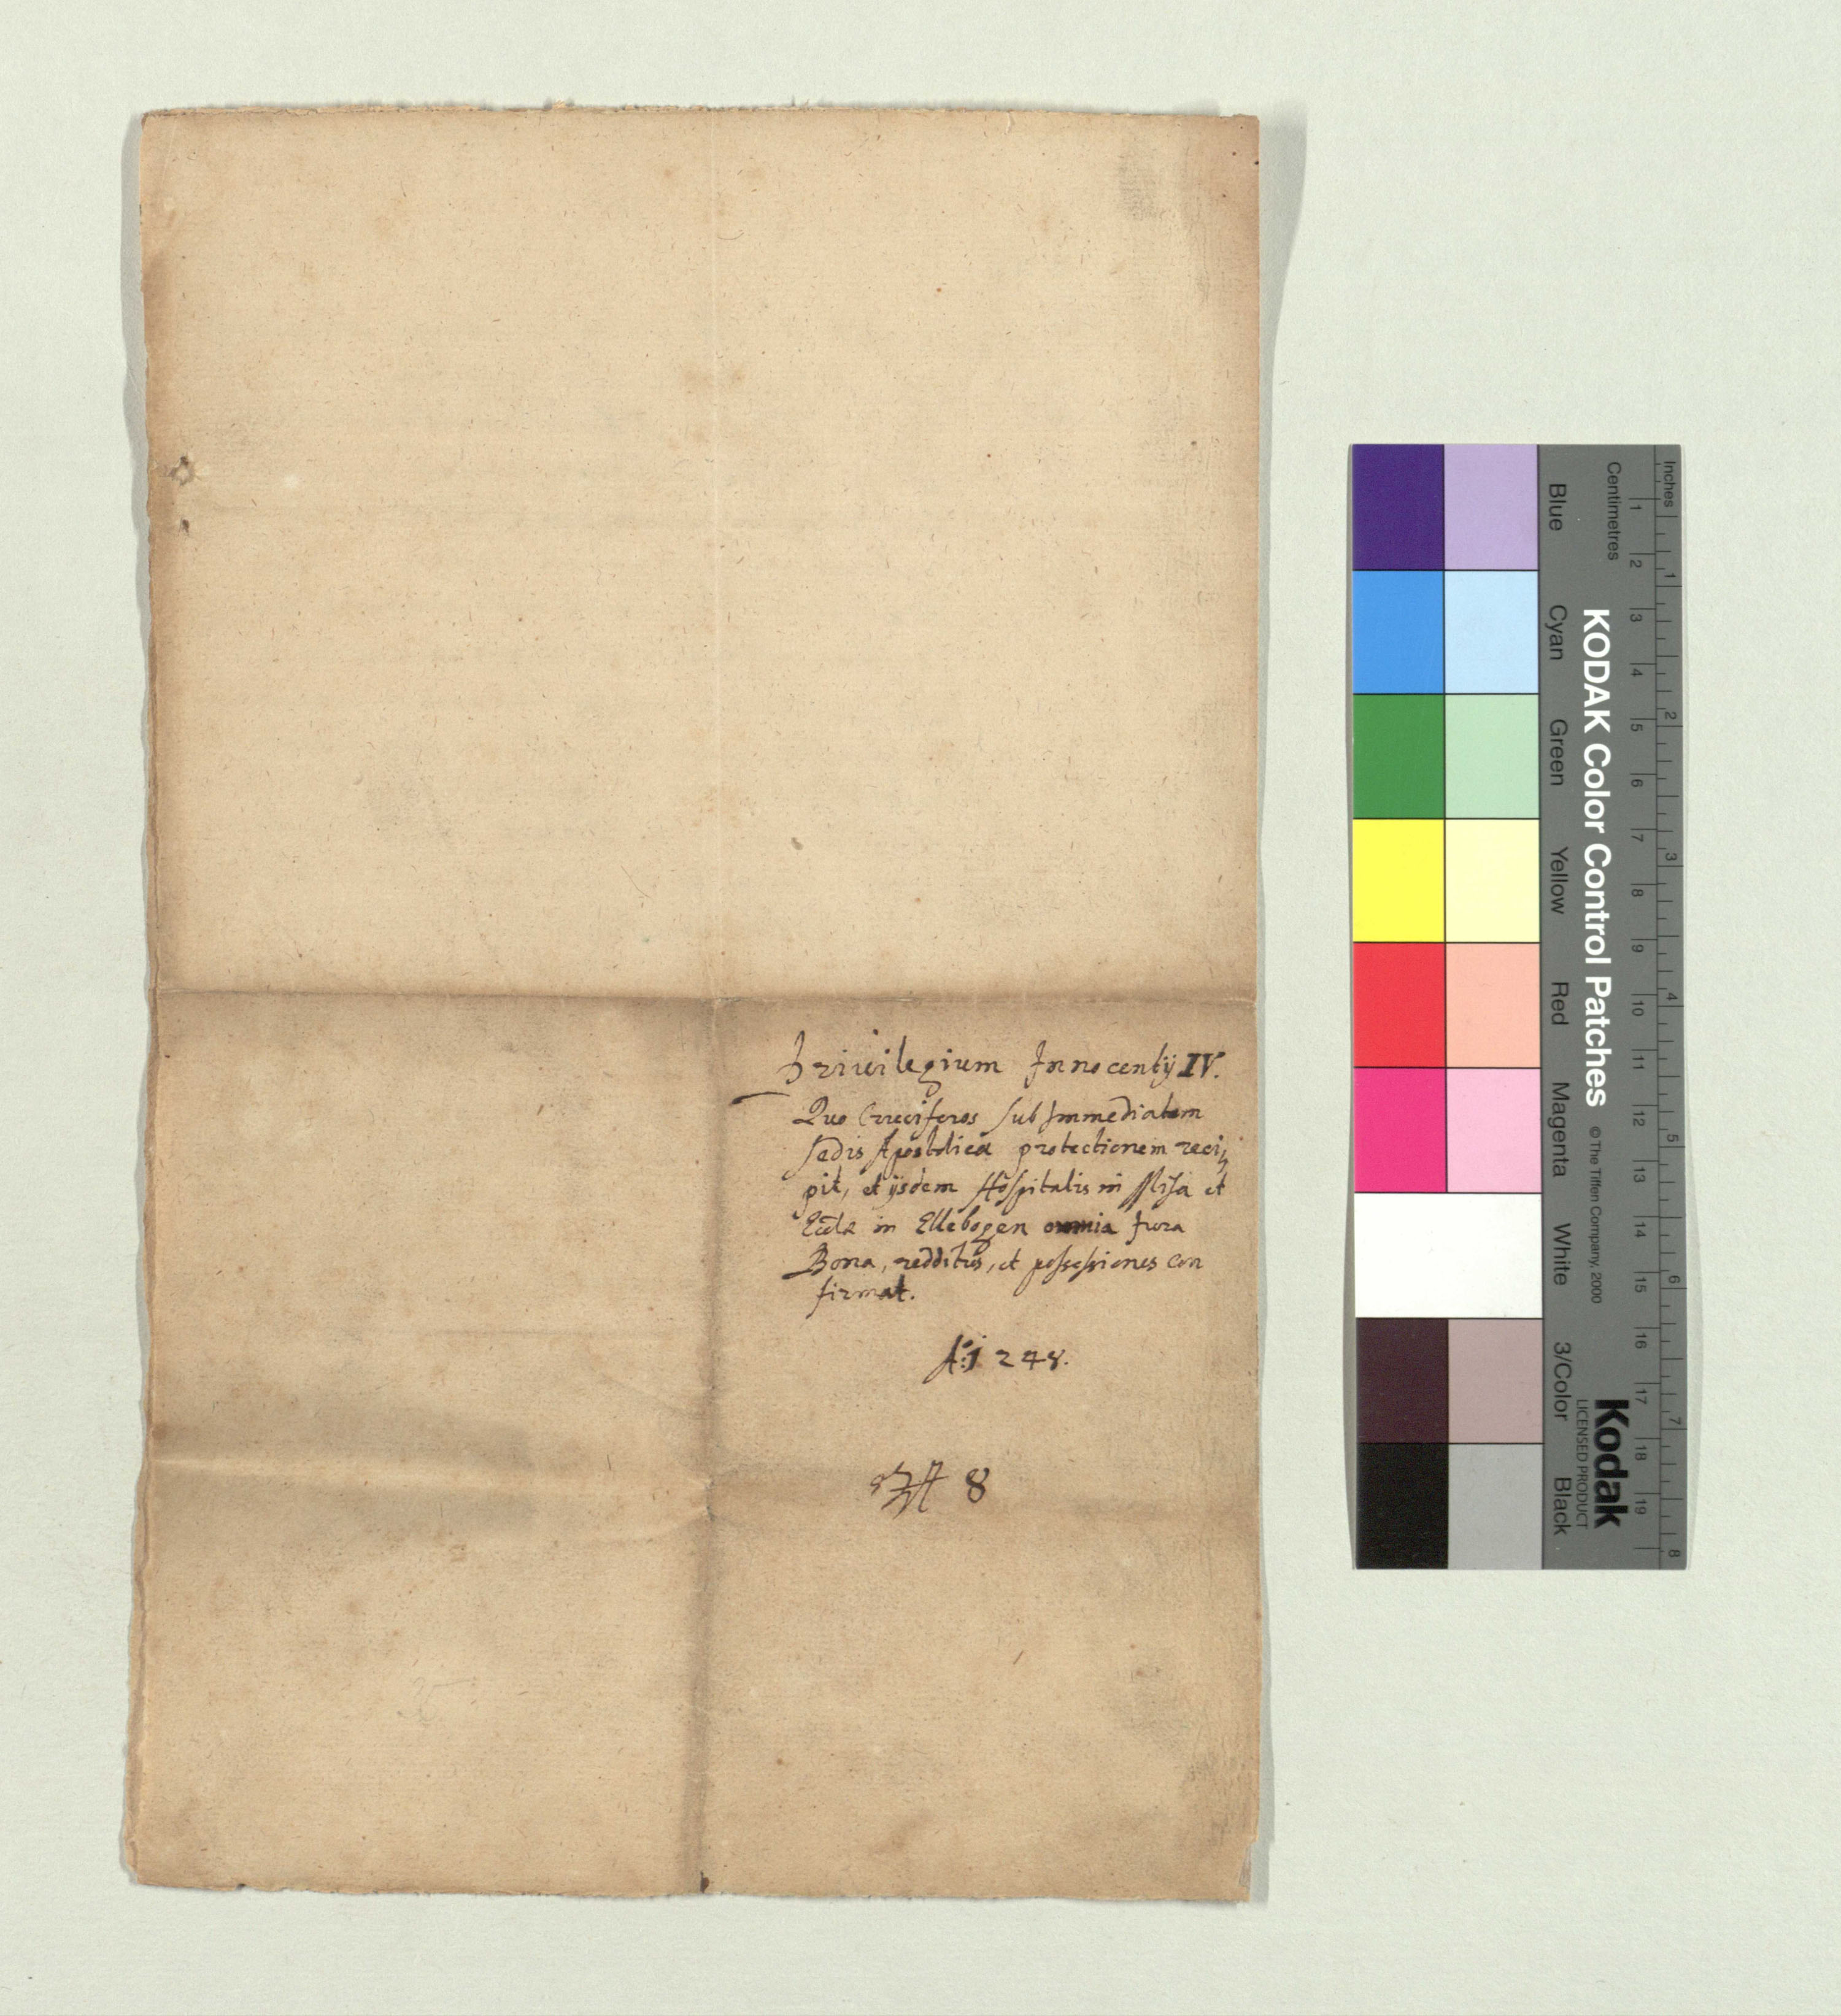 Privilegium Innocentij IV.
Quo Cruciferos sub Immediatam
sedis Apostolicæ protectionem reci¡
pit, et ijsdem Hospitalis in Misa et
Eccłæ in Ellebogen omnia Jura
Bona, redditus, et possessiones con
firmat.
A: 1248.
8
Inches
Centimetres
1 2 3 4 5 6 7 8 9 10 11 12 13 14 15 16 17 18 19
1 2 3 4 5 6 7 8
KODAK Color Control Patches © The Tiffen Company, 2000
Kodak
LICENSED PRODUCT
Blue Cyan Green Yellow Red Magenta White 3/Color Black